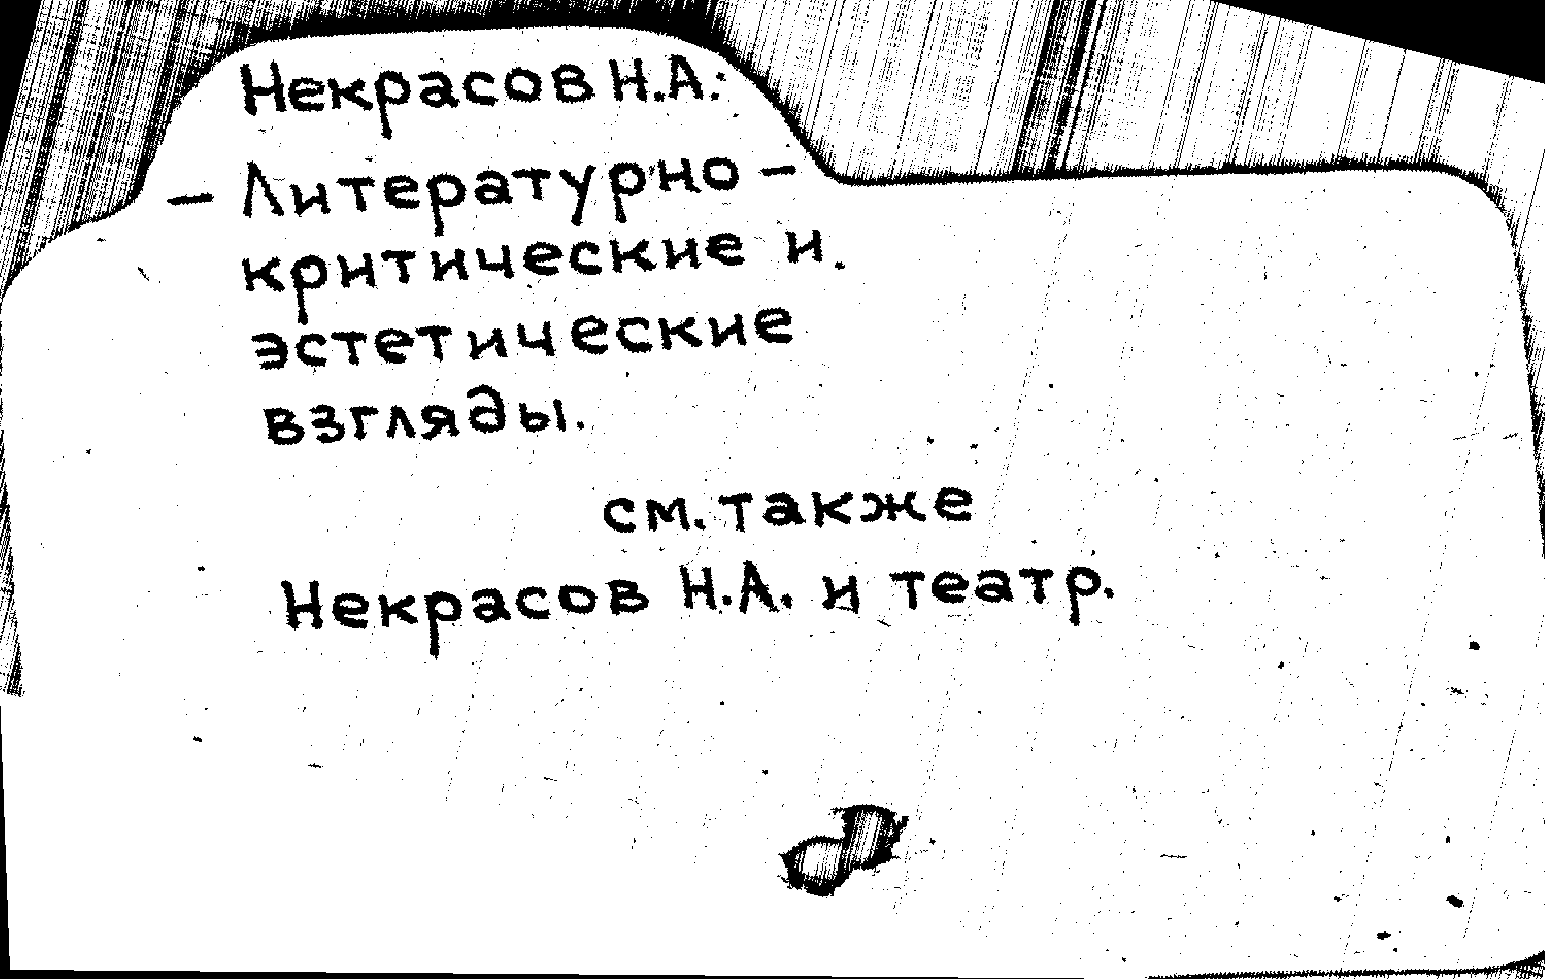 Некрасов Н.А.:
– Литературно –
критические и
эстетические
взгляды.
см. также
Некрасов Н.А. и театр.